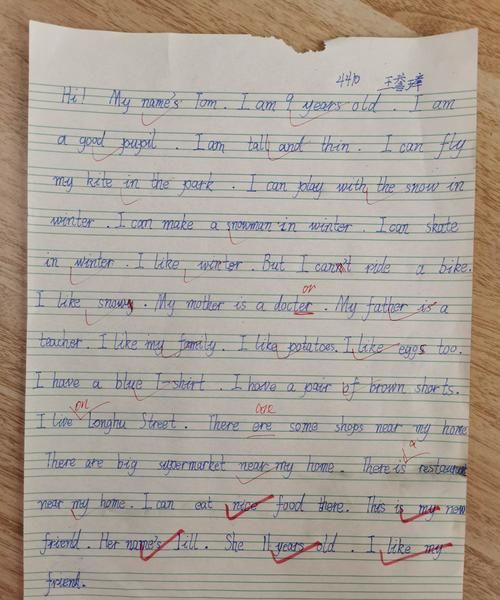 4410
Hi! My name's Tom. I am 9 years old. I am
a good pupil. I am tall and thin. I can fly
my kite in the park. I can play with the snow in
winter. I can make a snowman in winter. I can skate
in winter. I like winter. But I can't ride a bike.
or
I like snowy. My mother is a docter. My father is a
teacher. I like my family. I like potatoes. I like eggs too.
I have a blue T-shirt. I have a pair of brown shorts.
on are
I live Longhu Street. There are some shops near my home
a
There are big supermarket near my home. There is restaurant
near my home. I can eat nice food there. This is my new
friend. Her name's Jill. She 11 years old. I like my
friend.